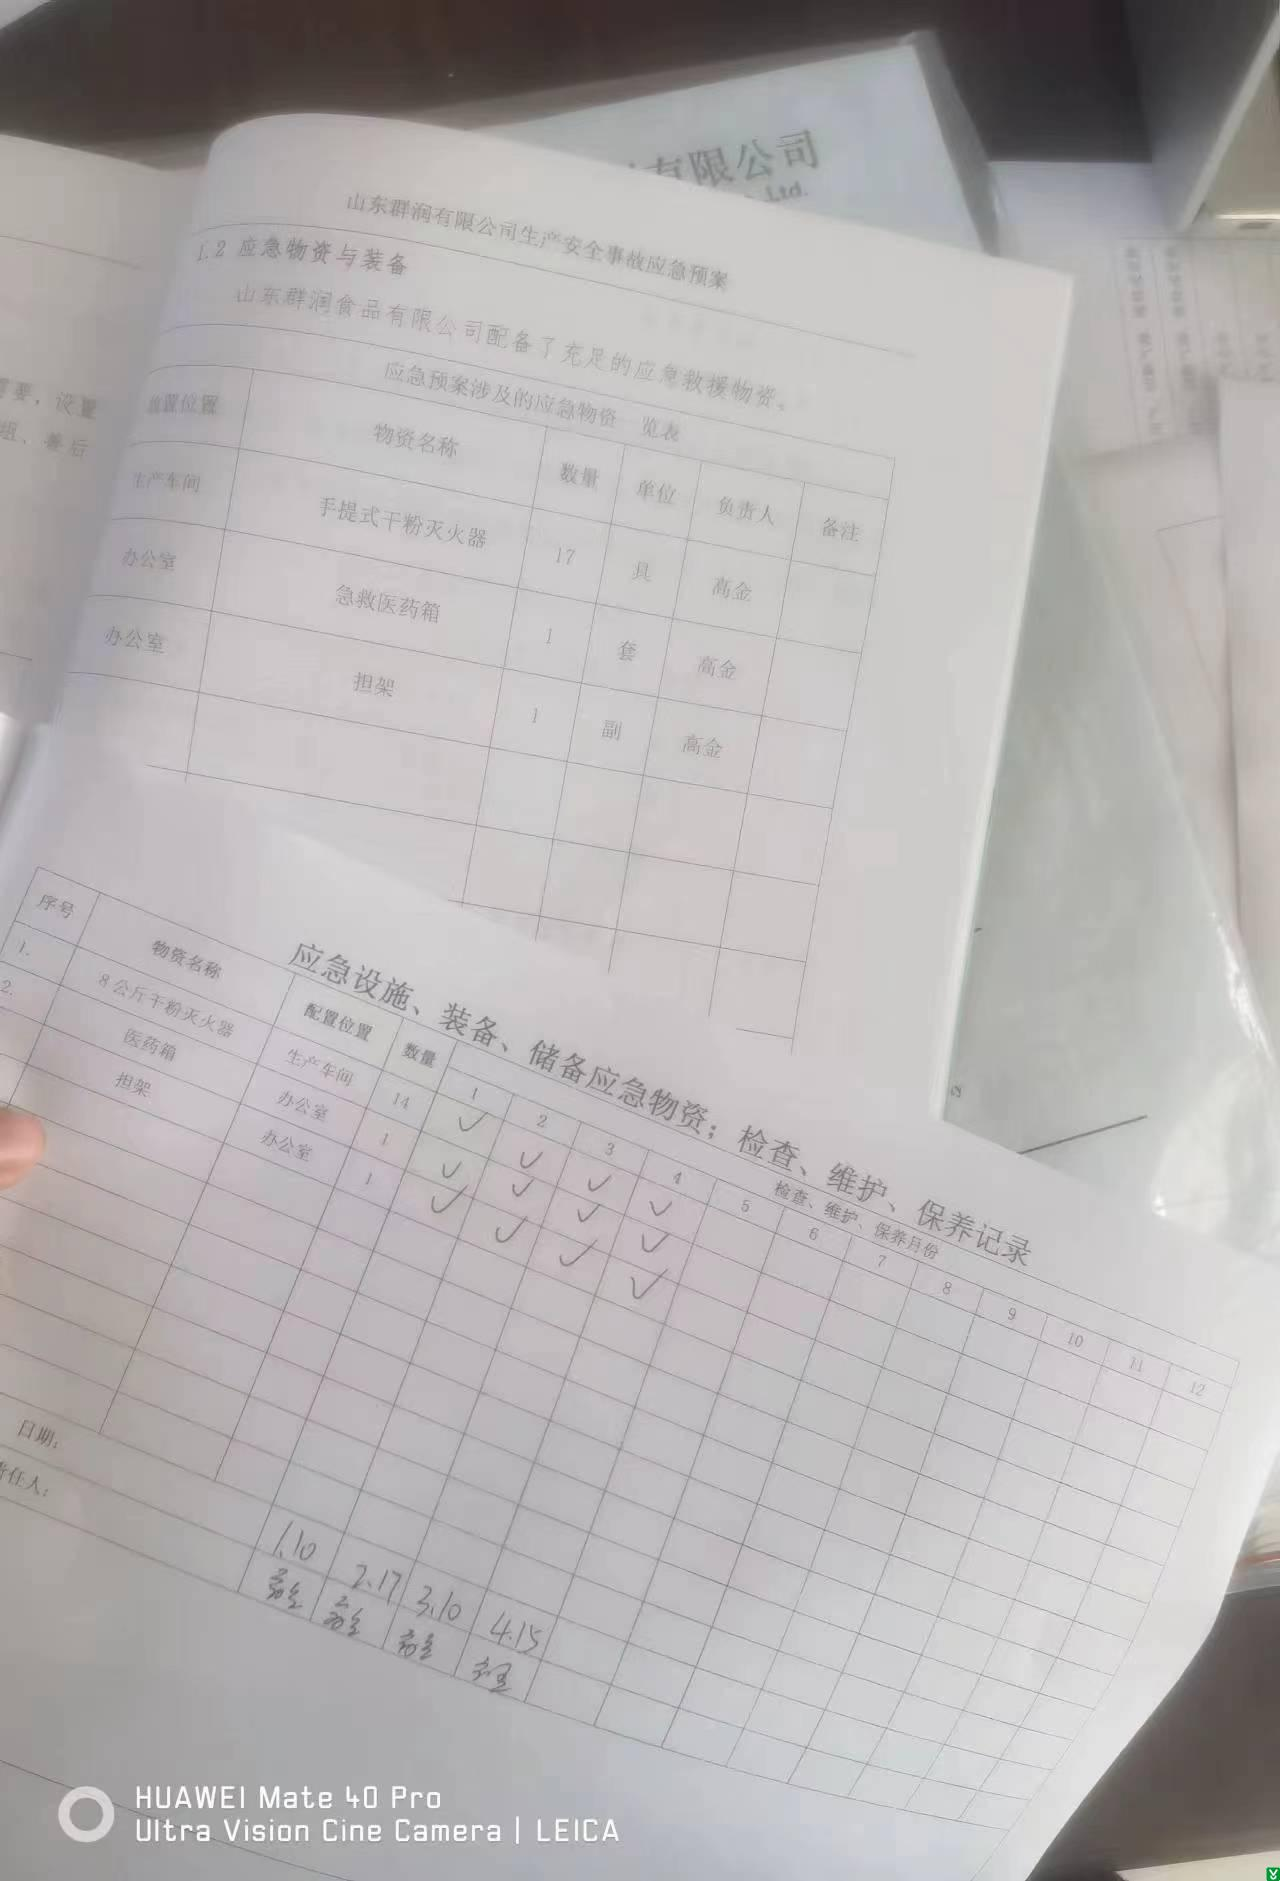 有限公司
Ltd.
山东群润有限公司生产安全事故应急预案
1.2 应急物资与装备
山东群润食品有限公司配备了充足的应急救援物资。
应急预案涉及的应急物资 览表
放置位置 物资名称 数量 单位 负责人 备注
生产车间 手提式干粉灭火器 17 具 高金
办公室 急救医药箱 1 套 高金
办公室 担架 1 副 高金
需要,设置
组、善后
应急设施、装备、储备应急物资;检查、维护、保养记录
序号 物资名称 配置位置 数量 检查、维护、保养月份
1 2 3 4 5 6 7 8 9 10 11 12
1. 8公斤干粉灭火器 生产车间 14 ✓ ✓ ✓ ✓
2. 医药箱 办公室 1 ✓ ✓ ✓ ✓
担架 办公室 1 ✓ ✓ ✓ ✓
日期: 1.10 2.17 3.10 4.15
责任人: 高金 高金 高金
HUAWEI Mate 40 Pro
Ultra Vision Cine Camera | LEICA